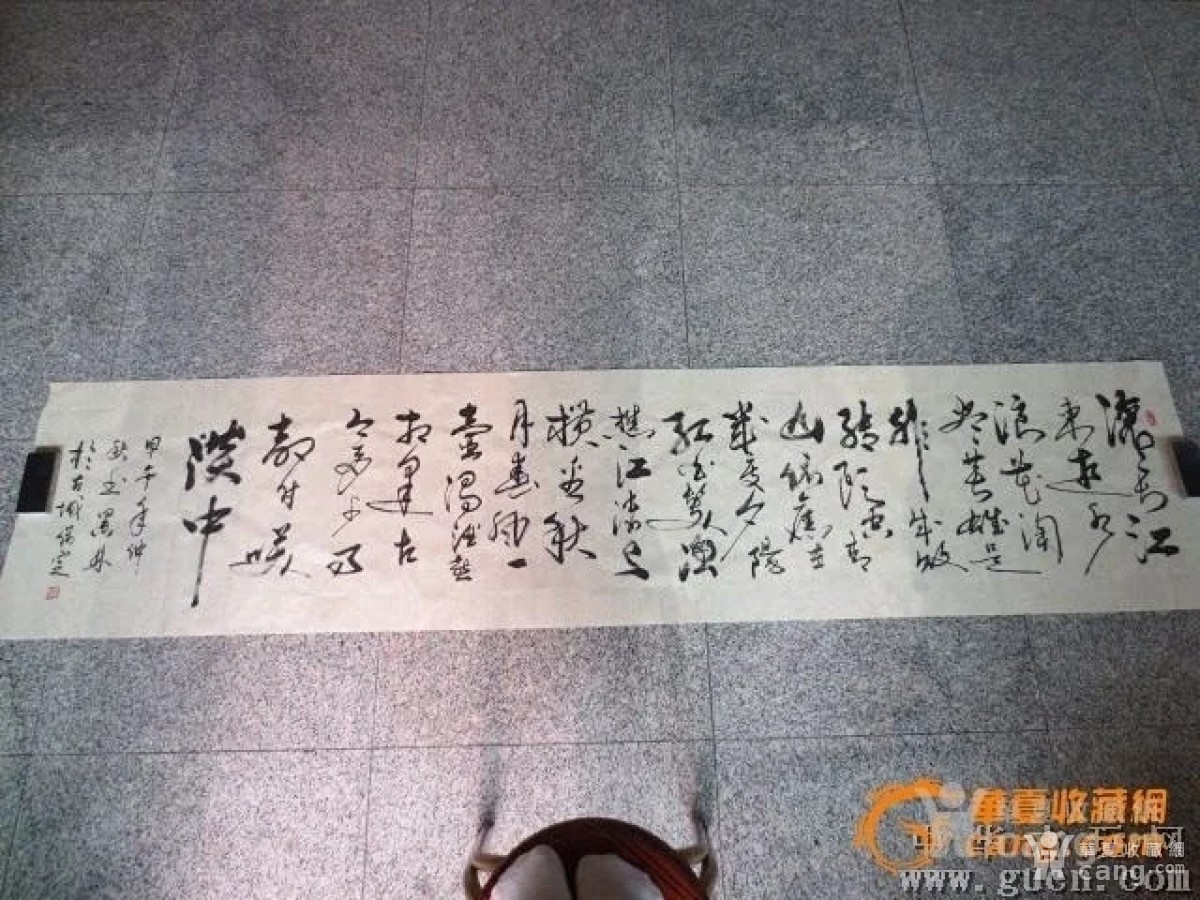 滚滚长江
东逝水
浪花淘
尽英雄是
非成败
转头空青
山依旧在
几度夕阳
红白发渔
樵江渚上
惯看秋
月春风一
壶浊酒喜
相逢古
今多少事
都付笑
谈中
甲午年仲
秋
於古城保定
華夏收藏網
華夏收藏網
cang.com
www.guch.com